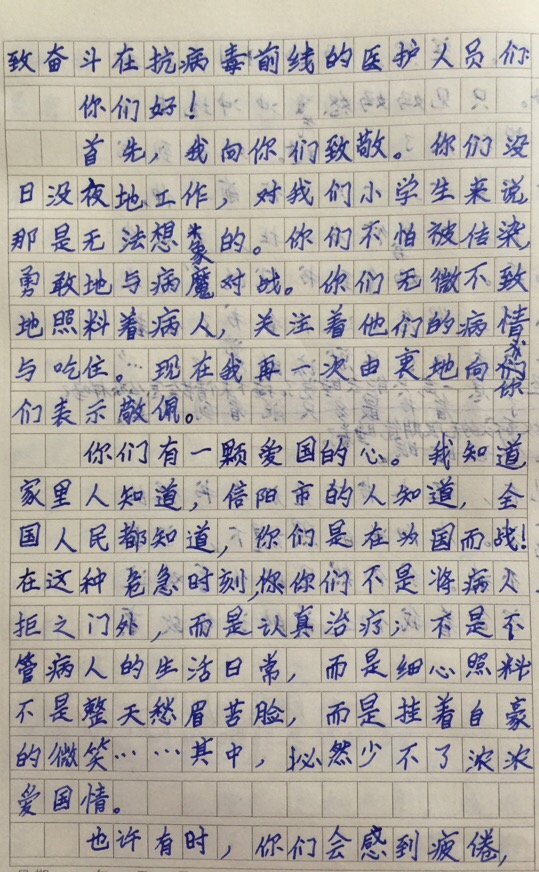 致奋斗在抗病毒前线的医护人员们:
你们好!
首先,我向你们致敬。你们没
日没夜地工作,对我们小学生来说
那是无法想象的。你们不怕被传染,
勇敢地与病魔对战。你们无微不致
地照料着病人,关注着他们的病情
与吃住。…现在我再一次由衷地向你
们表示敬佩。
你们有一颗爱国的心。我知道
家里人知道,信阳市的人知道,全
国人民都知道,你们是在为国而战!
在这种危急时刻,你你们不是将病人
拒之门外,而是认真治疗;不是不
管病人的生活日常,而是细心照料
不是整天愁眉苦脸,而是挂着自豪
的微笑……其中,必然少不了浓浓
爱国情。
也许有时,你们会感到疲倦,